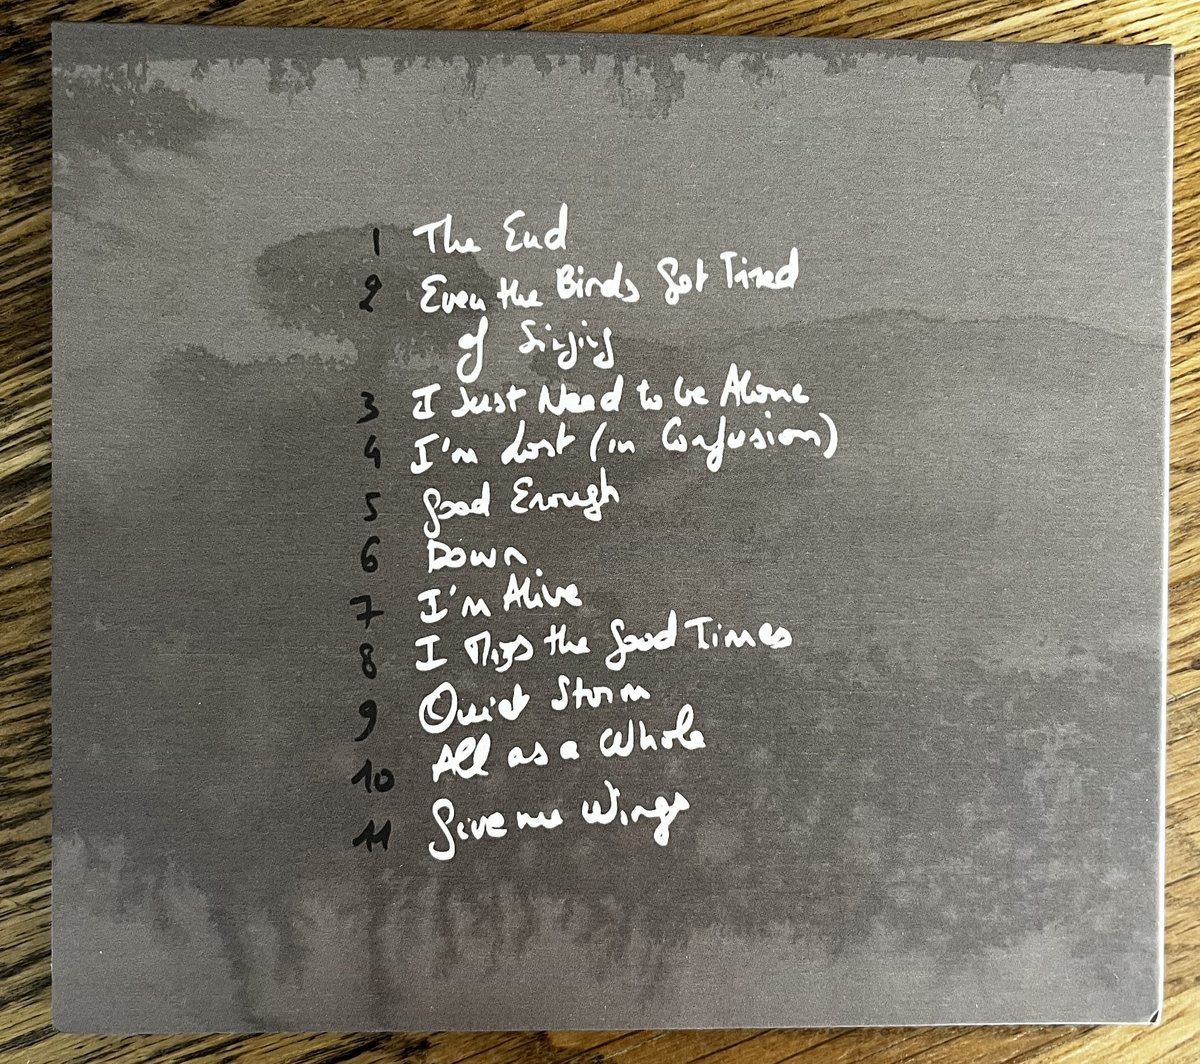 1 The End
2 Even the Birds Got Tired
of Singing
3 I Just Need to be Alone
4 I'm Lost (in Confusion)
5 Good Enough
6 Down
7 I'm Alive
8 I Miss the Good Times
9 Quiet Storm
10 All as a Whole
11 Give me Wings